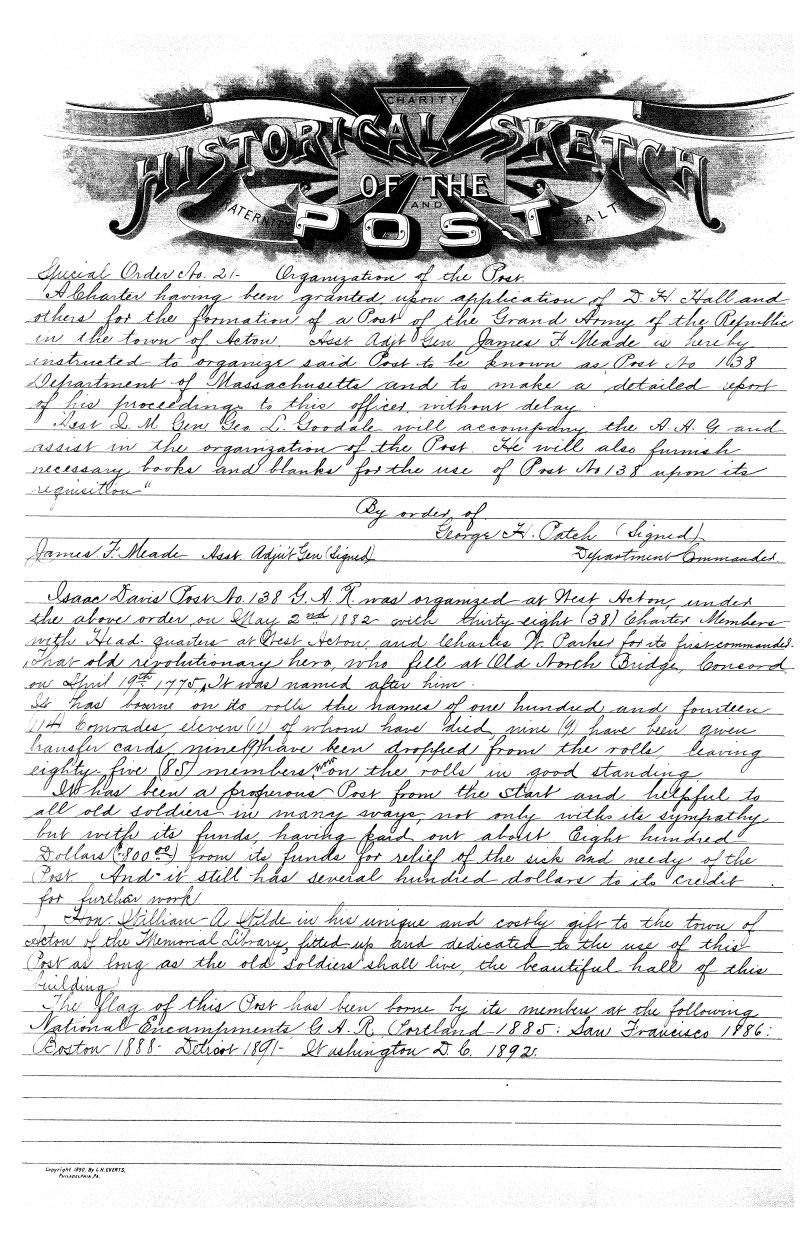 CHARITY
HISTORICAL SKETCH
OF THE
FRATERNITY AND LOYALTY
POST
Special Order No. 21- Organization of the Post.
A Charter having been granted, upon application of D. H. Hall and
others for the formation of a Post of the Grand Army of the Republic
in the town of Acton. Asst Adjt Gen James F Meade is hereby
instructed to organize said Post to be known as Post No 138
Department of Massachusetts and to make a detailed report
of his proceedings to this officer without delay.
Asst Q. M Gen Geo. L. Goodale will accompany the A A. G. and
assist in the organization of the Post. He will also furnish
necessary books and blanks for the use of Post No 138 upon its
requisition"
By order of
George H. Patch (Signed)
James F. Meade Asst. Adjut Gen (Signed) Department Commander.
Isaac Davis Post No. 138 G. A. R. was organized at West Acton, under
the above order, on May 2nd 1882 with thirty eight (38) Charter Members
with Head-quarters at West Acton, and Charles W. Parker for its first commander.
That old revolutionary hero, who fell at Old North Bridge, Concord
on April 19th 1775, It was named after him.
It has bourne on its rolls the names of one hundred and fourteen
(114) Comrades, eleven (11) of whom have died, nine (9) have been given
transfer cards, nine (9) have been dropped from the rolls, leaving
eighty five (85) members, now on the rolls in good standing.
It has been a prosperous Post from the start and helpful to
all old soldiers in many ways, not only with its sympathy
but with its funds, having paid out about Eight hundred
Dollars ($800 00) from its funds for relief of the sick and needy of the
Post. And it still has several hundred dollars to its credit
for further work.
Hon. William A Wilde in his unique and costly gift to the town of
Acton of the Memorial Library, fitted up and dedicated to the use of this
Post as long as the old soldiers shall live, the beautiful hall of this
building.
The flag of this Post has been borne by its members at the following
National Encampments G. A. R. Portland 1885: San Francisco 1886:
Boston 1888- Detroit 1891- Washington D. C. 1892.
Copyright 1890, By L.H. EVERTS,
PHILADELPHIA, PA.